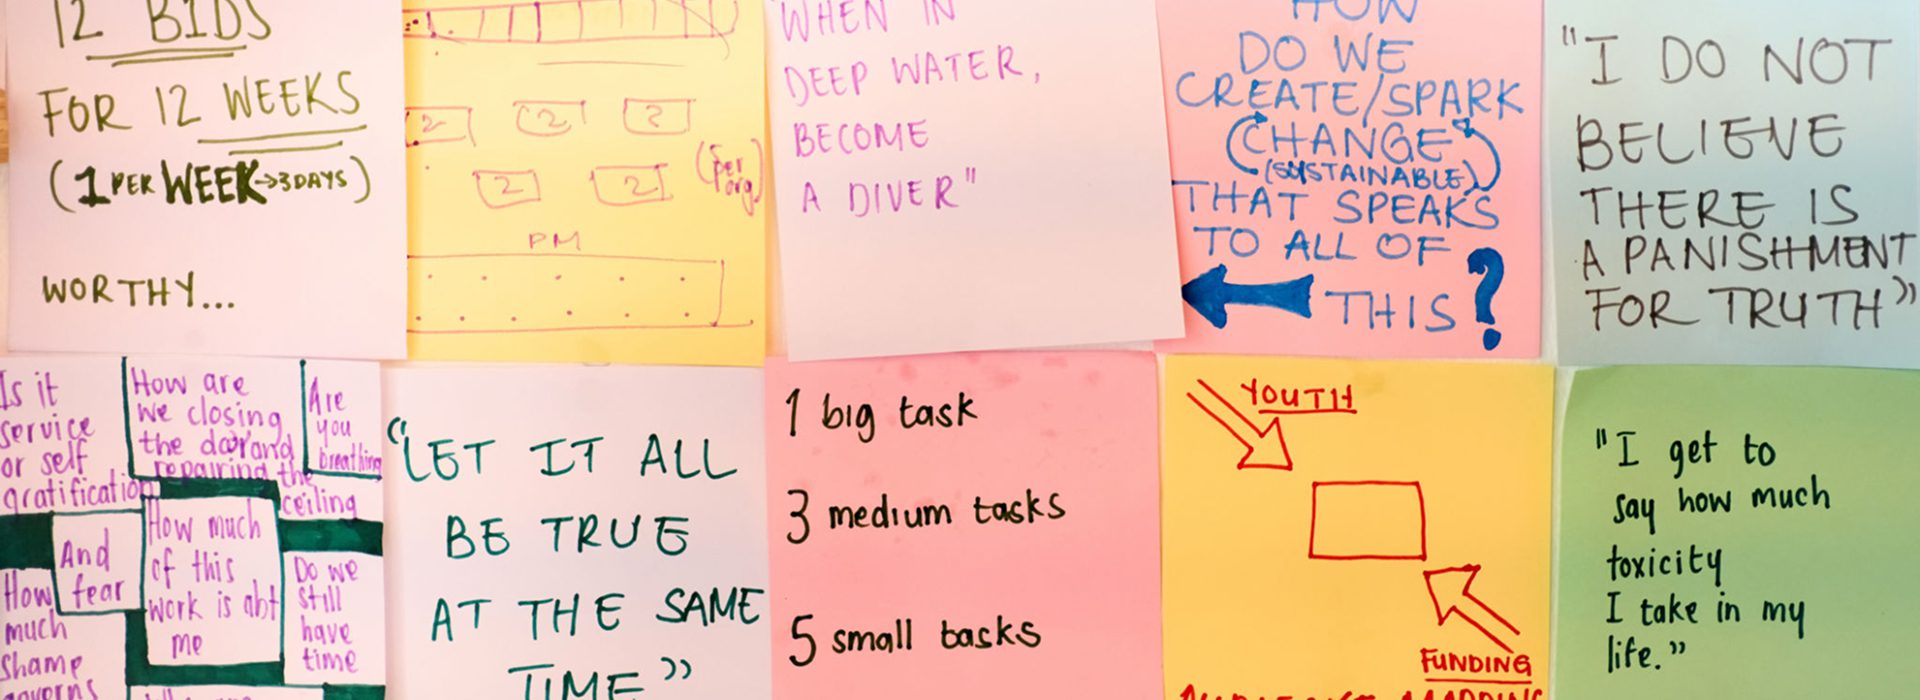 12 BIDS
FOR 12 WEEKS
(1 PER WEEK→3 DAYS)
WORTHY...
2 2 2
2 2
(Per
org)
PM
WHEN IN
DEEP WATER,
BECOME
A DIVER"
HOW
DO WE
CREATE/SPARK
CHANGE
(SUSTAINABLE)
THAT SPEAKS
TO ALL OF
THIS?
"I DO NOT
BELIEVE
THERE IS
A PANISHMENT
FOR TRUTH"
Is it
service
or self
gratification
How are
we closing
the door and
repairing the
ceiling
Are
you
breathing
And
fear
How
much
shame
governs
How much
of this
work is abt
me
Do we
still
have
time
"LET IT ALL
BE TRUE
AT THE SAME
TIME"
1 big task
3 medium tasks
5 small tasks
YOUTH
FUNDING
"I get to
say how much
toxicity
I take in my
life."